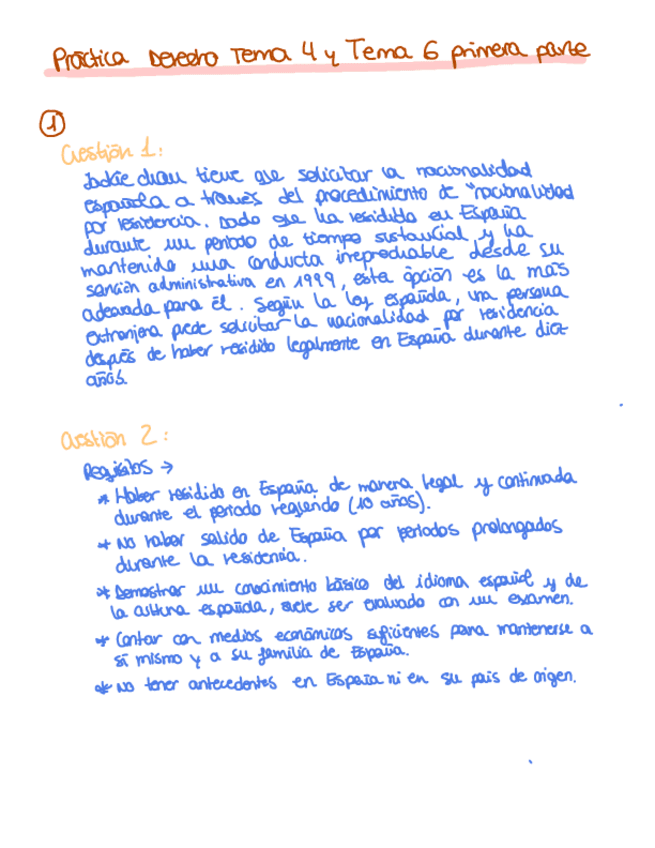 Práctica Derecho Tema 4 y Tema 6 primera parte
1
Cuestión 1:
Jackie chan tiene que solicitar la nacionalidad
española a través del procedimiento de "nacionalidad
por residencia. Dado que ha residido en España
durante un periodo de tiempo sustancial y ha
mantenido una conducta irreprochable desde su
sanción administrativa en 1999, esta opción es la más
adecuada para él. Según la ley española, una persona
extranjera puede solicitar la nacionalidad por residencia
después de haber residido legalmente en España durante diez
años.
Cuestión 2:
Requisitos →
* Haber residido en España de manera legal y continuada
durante el periodo requerido (10 años).
* No haber salido de España por periodos prolongados
durante la residencia.
* Demostrar un conocimiento básico del idioma español y de
la cultura española, suele ser evaluado con un examen.
* Contar con medios económicos suficientes para mantenerse a
sí mismo y a su familia de España.
* No tener antecedentes en España ni en su pais de origen.